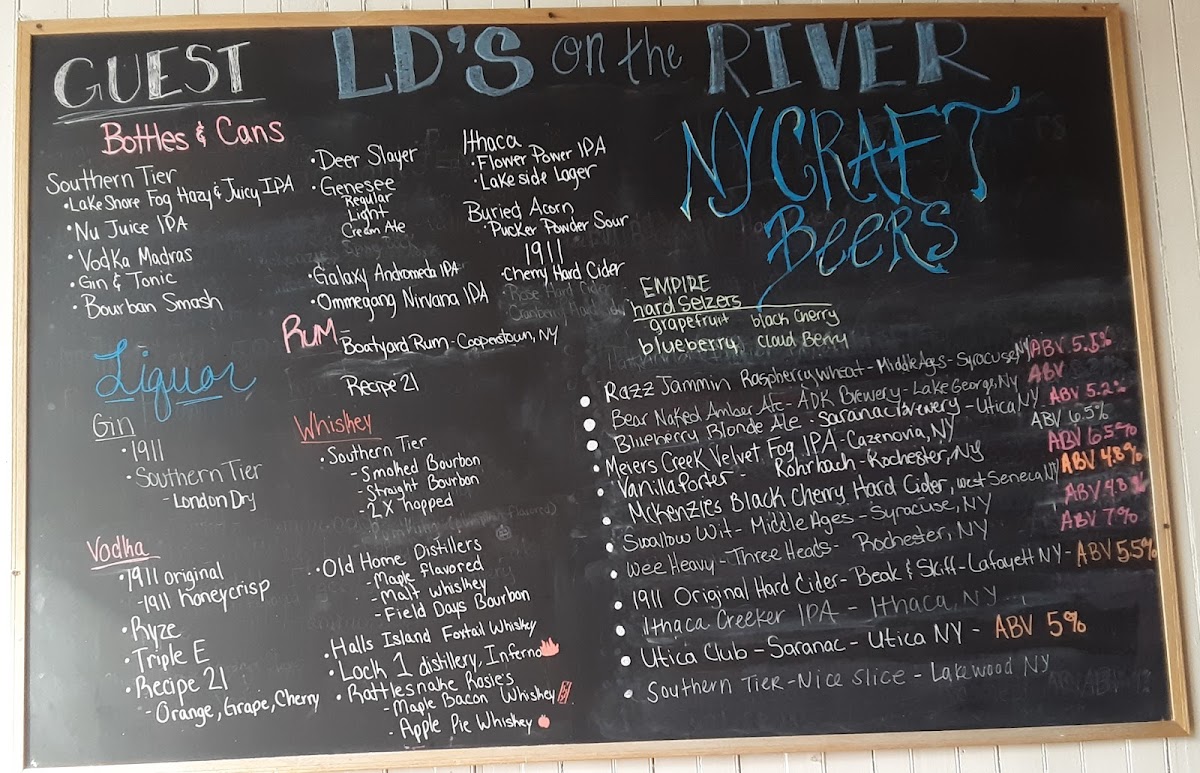 GUEST LD'S on the RIVER
Bottles & Cans
Southern Tier
• Lake Shore Fog Hazy & Juicy IPA
• Nu Juice IPA
• Vodka Madras
• Gin & Tonic
• Bourban Smash
• Deer Slayer
• Genesee
Regular
Light
Cream Ale
• Galaxy Andromeda IPA
• Ommegang Nirvana IPA
Ithaca
• Flower Power IPA
• Lakeside Lager
Buried Acorn
• Pucker Powder Sour
1911
• Cherry Hard Cider
• Rose Hard Cider
Cranberry Hard
Liquor
Gin
• 1911
• Southern Tier
- London Dry
Vodka
• 1911 original
- 1911 honeycrisp
• Ryze
• Triple E
• Recipe 21
- Orange, Grape, Cherry
Rum
- Boatyard Rum - Cooperstown, NY
Recipe 21
Whiskey
• Southern Tier
- Smoked Bourbon
- Straight Bourbon
- 2X hopped
• Old Home Distillers
- Maple flavored
- Malt Whiskey
- Field Days Bourbon
• Halls Island Fortail Whiskey
• Lock 1 distillery, Inferno
• Rattlesnake Rosies
- Maple Bacon Whiskey
- Apple Pie Whiskey
NY CRAFT
BEERS
EMPIRE
hard Selzers
grapefruit black Cherry
blueberry cloud Berry
• Razz Jammin Raspberry Wheat - Middle Ages - Syracuse, NY ABV 5.5%
• Bear Naked Amber Ale - ADK Brewery - Lake George, NY ABV
• Blueberry Blonde Ale - Saranac brewery - Utica NY ABV 5.2%
• Meiers Creek Velvet Fog IPA - Cazenovia, NY ABV 6.5%
• Vanilla Porter - Rohrbach - Rochester, NY ABV 6.5%
• McKenzies Black Cherry Hard Cider, West Seneca NY ABV 4.8%
• Swallow Wit - Middle Ages - Syracuse, NY ABV 4.8%
• Wee Heavy - Three Heads - Rochester, NY ABV 7%
• 1911 Original Hard Cider - Beak & Skiff - Lafayett NY - ABV 5.5%
• Ithaca Creeker IPA - Ithaca, NY
• Utica Club - Saranac - Utica NY - ABV 5%
• Southern Tier - Nice Slice - Lakewood NY